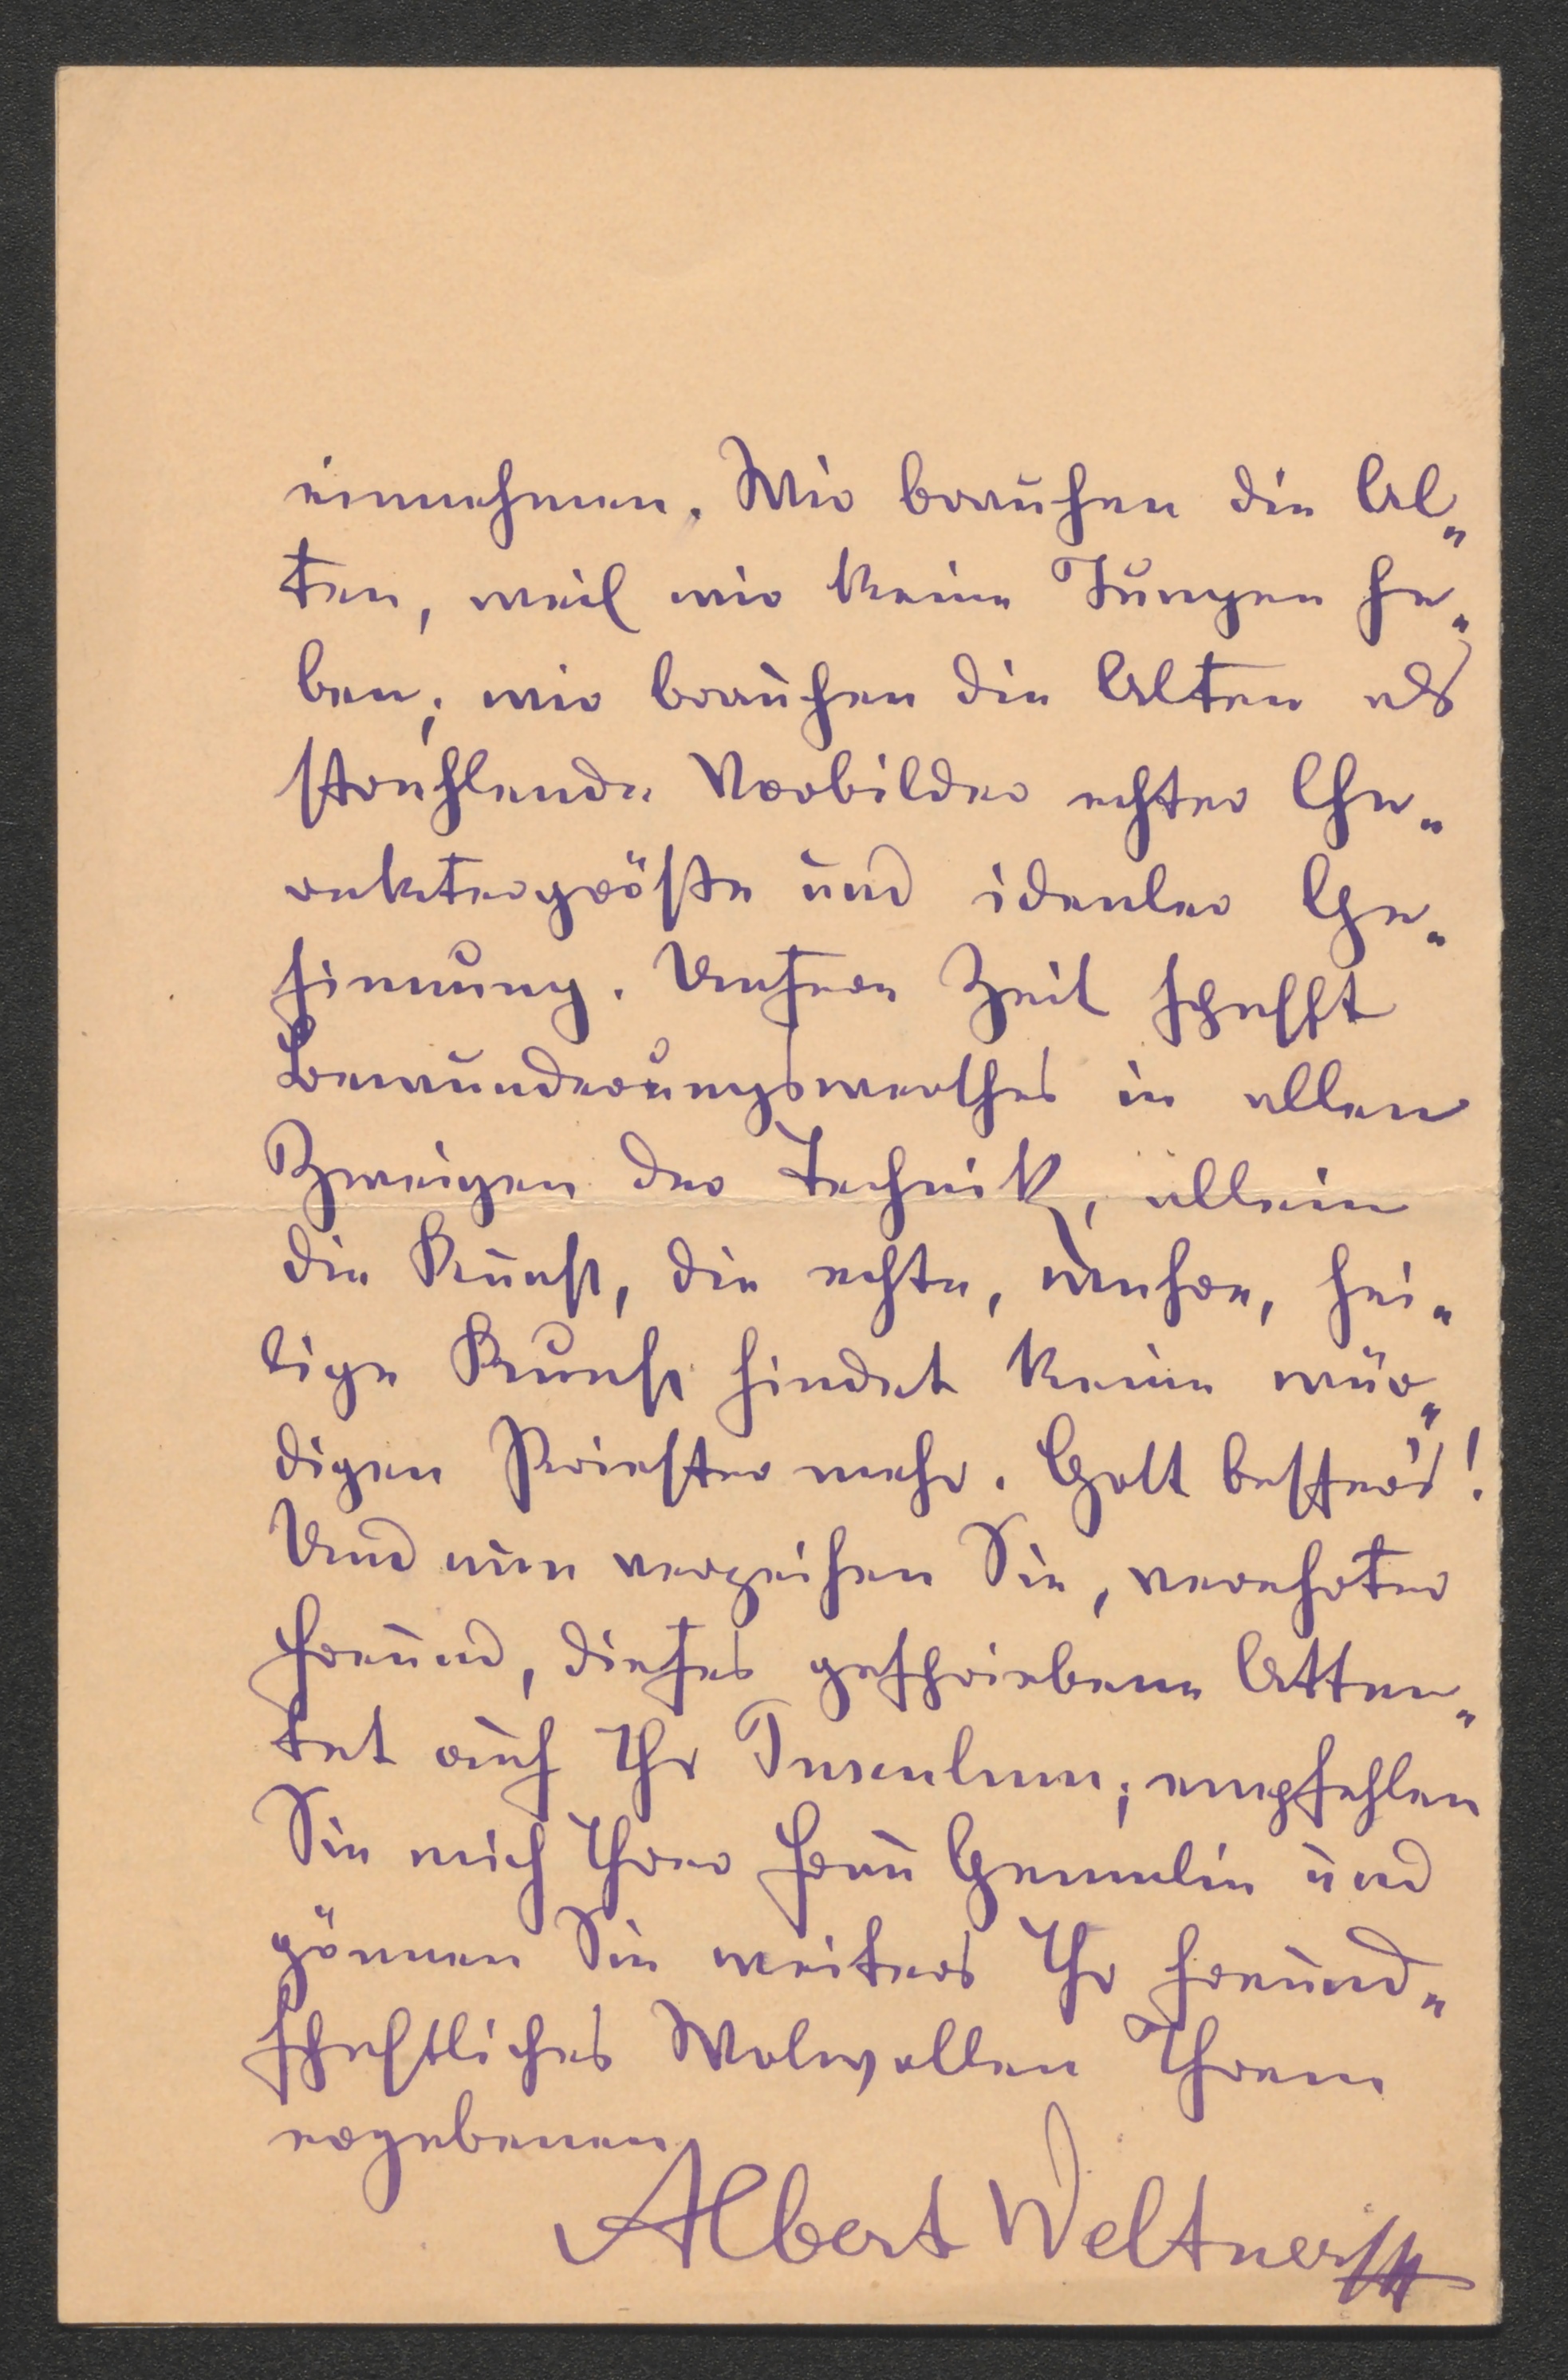 einnehmen. Wir brauchen die Al„
ten, weil wir keine Jungen ha„
ben; wir brauchen die Alten als
strahlende Vorbilder echter Cha„
raktergröße und idealer Ge„
sinnung. Unsere Zeit schafft
Bewunderungswerthes in allen
Zweigen der Technik, allein
die Kunst, die echte, wahre, hei„
lige Kunst findet keine wür„
digen Priester mehr. Gott besser's!
Und nun verzeihen Sie, verehrter
Freund, dieses geschriebene Atten„
tat auf Ihr Tusculum; empfehlen
Sie mich Ihrer Frau Gemalin und
gönnen Sie weiters Ihr freund„
schaftliches Wolwollen Ihrem
ergebenen
Albert Weltner